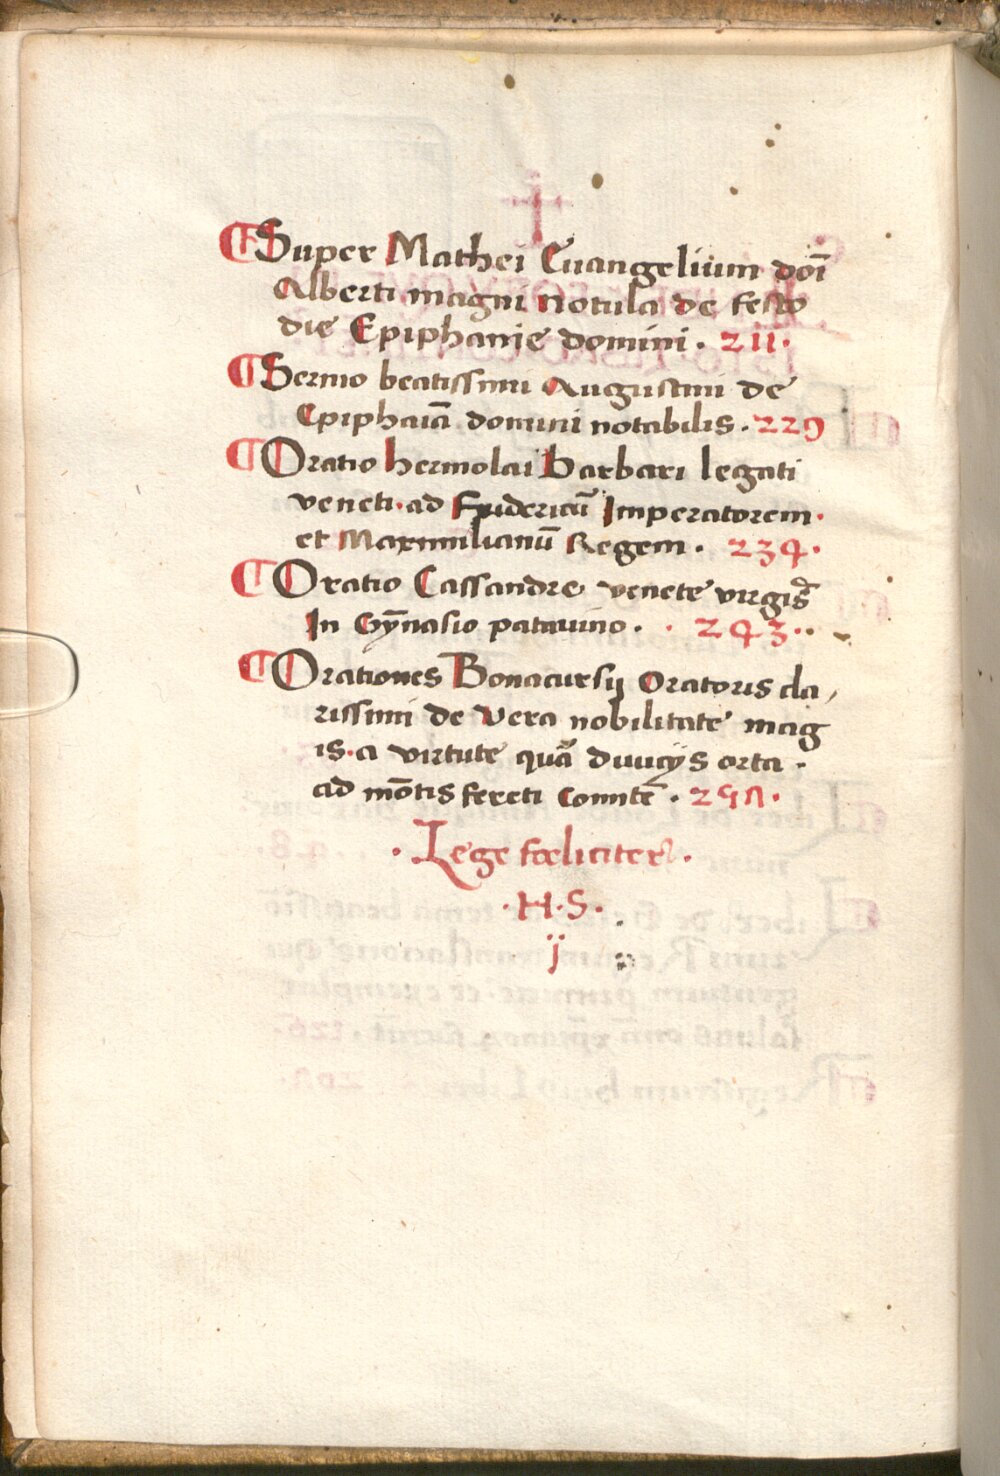 Super Mathei Euangelium doī
Alberti magni notula de festo
die Epiphanie domini . 211.
Sermo beatissimi Augustini de
Epiphaīa domini notabilis . 229
Oratio hermolai Barbari legati
veneti . ad Fridericū Imperatorem .
et Maximilianū Regem . 234.
Oratio Cassandre venete virgīs
In Gȳnasio patauino . . 243 .
Orationes Bonacursij Oratoris cla,
rissimi de vera nobilitate mag
is . a virtute quā diuicijs orta .
ad mōtis fereti comitē .
. Lege fœliciter .
. H . S .
ij